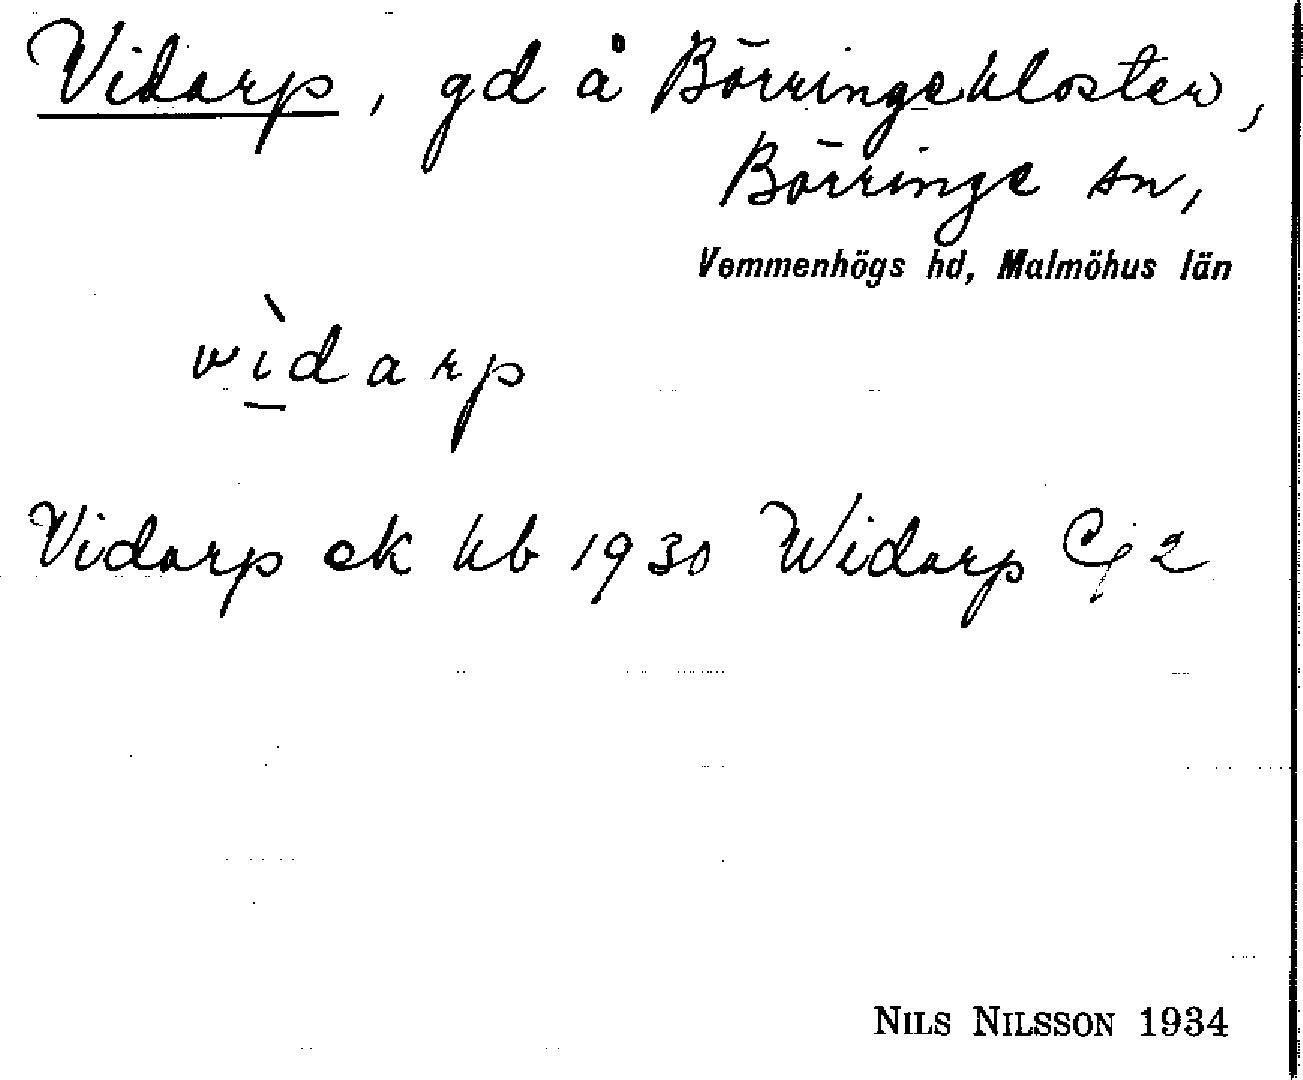 Vidarp, gd å Börringekloster,
Börringe sn,
Vemmenhögs hd, Malmöhus län
wìdarp
Vidarp ek kb 1930 Widarp Cg 2
NILS NILSSON 1934